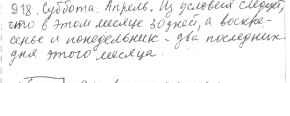 918. Суббота. Апрель. Из условия следует,
что в этом месяце 30 дней, а воскре-
сенье и понедельник - два последних
дня этого месяца.